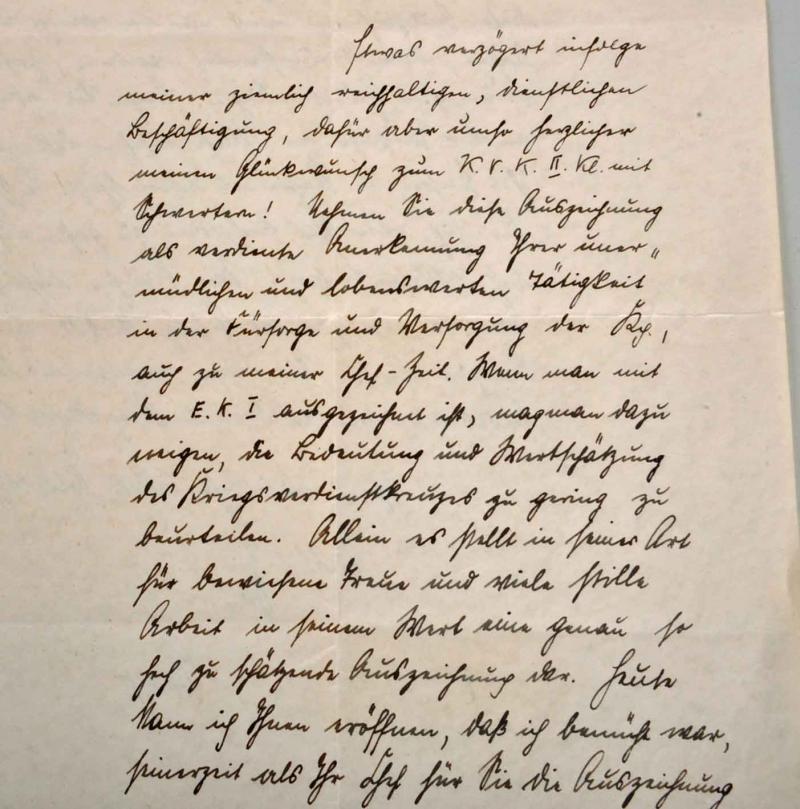 Etwas verzögert infolge
meiner ziemlich reichhaltigen, dienstlichen
Beschäftigung, dafür aber umso herzlicher
meinen Glückwunsch zum K.V.K. II. Kl. mit
Schwertern! Nehmen Sie diese Auszeichnung
als verdiente Anerkennung Ihrer uner„
müdlichen und lobenswerten Tätigkeit
in der Fürsorge und Versorgung der Kp.,
auch zu meiner Chef-Zeit. Wenn man mit
dem E.K. I ausgezeichnet ist, mag man dazu
neigen, die Bedeutung und Wertschätzung
des Kriegsverdienstkreuzes zu gering zu
beurteilen. Allein es stellt in seiner Art
für bewiesene Treue und viele stille
Arbeit in seinem Wert eine genau so
hoch zu schätzende Auszeichnung dar. Heute
kann ich Ihnen eröffnen, daß ich bemüht war,
seinerzeit als Ihr Chef für Sie die Auszeichnung